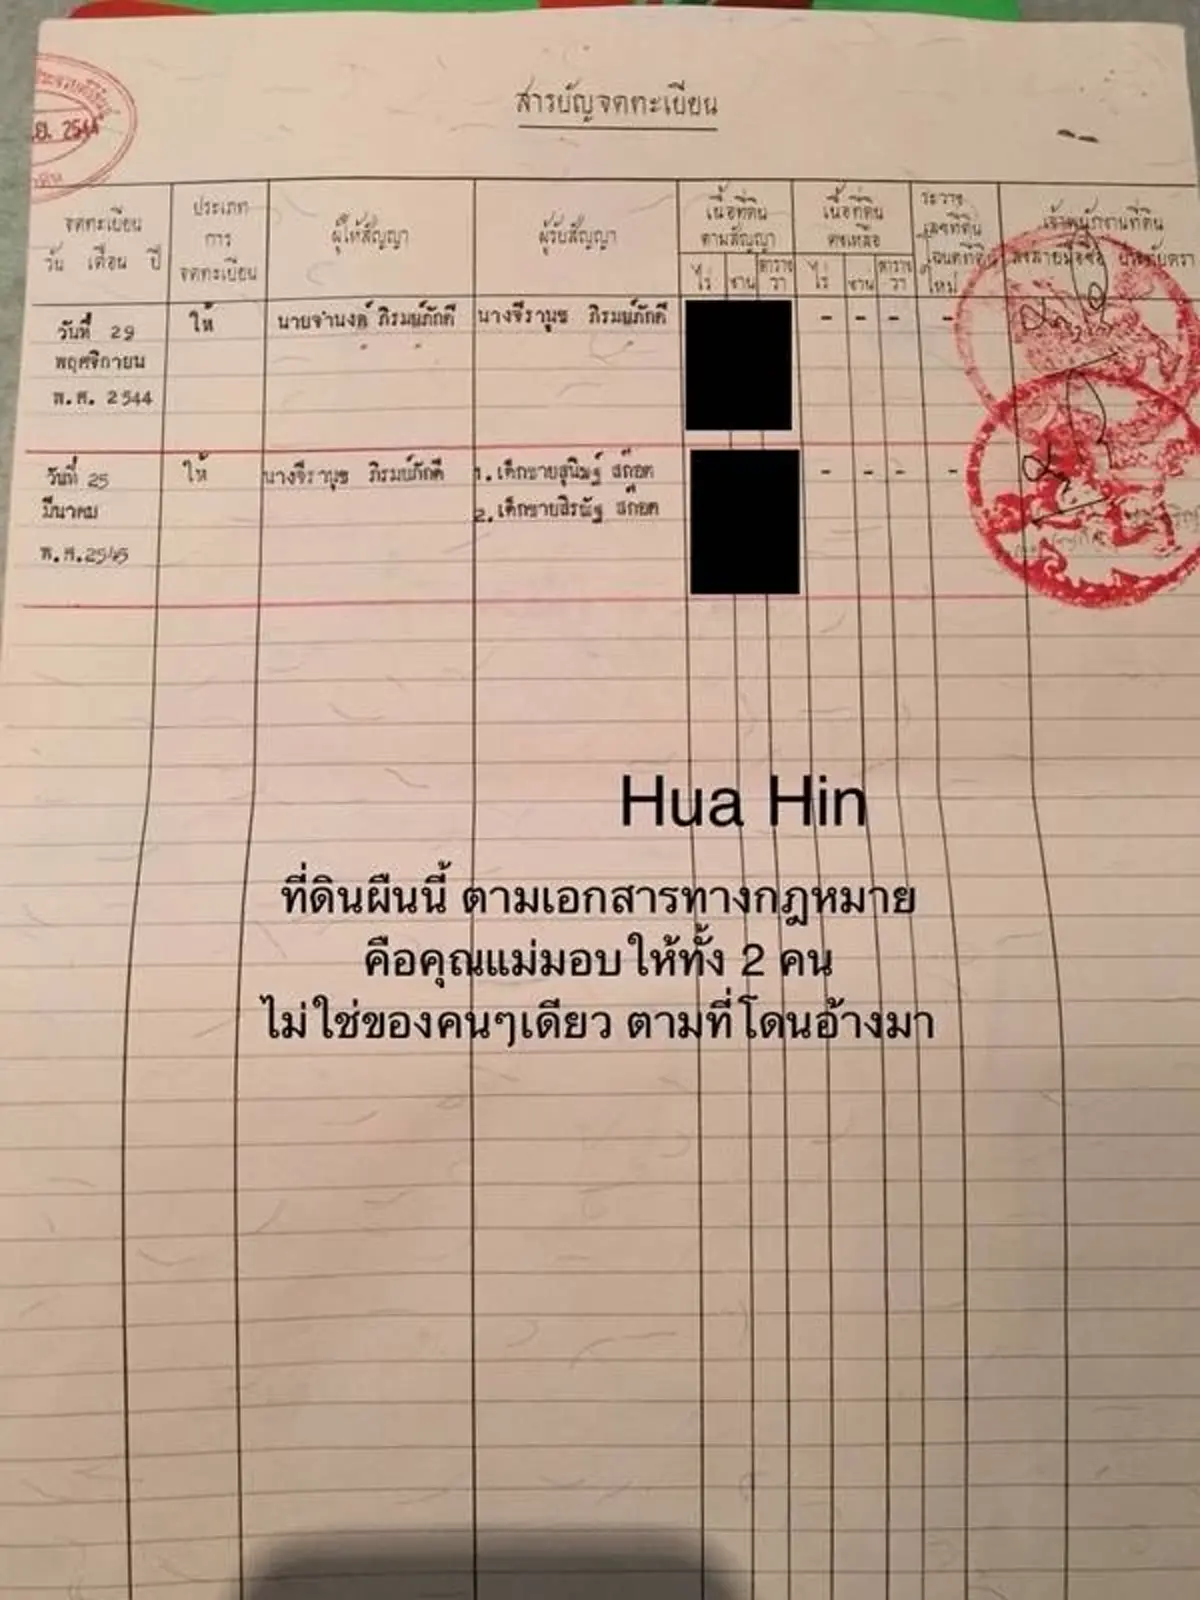 สารบัญจดทะเบียน
ย. 2544
จดทะเบียน
วัน เดือน ปี
ประเภท
การ
จดทะเบียน
ผู้ให้สัญญา
ผู้รับสัญญา
เนื้อที่ดิน
ตามสัญญา
ไร่ งาน ตาราง
วา
เนื้อที่ดิน
คงเหลือ
ไร่ งาน ตาราง
วา
ระวาง
เลขที่ดิน
โฉนดที่ดิน
ใหม่
เจ้าพนักงานที่ดิน
ลงลายมือชื่อ ประทับตรา
วันที่ 29 ให้ นายจำนงค์ ภิรมย์ภักดี นางจีรานุช ภิรมย์ภักดี - - - -
พฤศจิกายน
พ.ศ. 2544
วันที่ 25 ให้ นางจีรานุช ภิรมย์ภักดี 1. เด็กชายสุนิษฐ์ สก๊อต - - - -
มีนาคม 2. เด็กชายสิรณัฐ สก๊อต
พ.ศ.2545
Hua Hin
ที่ดินผืนนี้ ตามเอกสารทางกฎหมาย
คือคุณแม่มอบให้ทั้ง 2 คน
ไม่ใช่ของคนๆเดียว ตามที่โดนอ้างมา